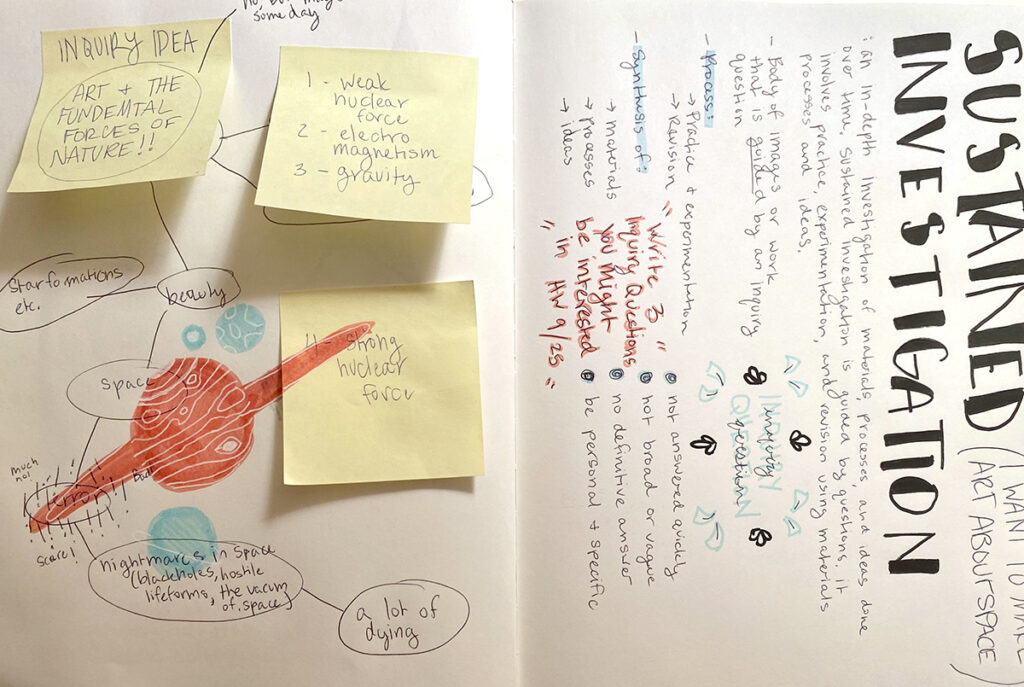 some day
INQUIRY IDEA
ART & THE
FUNDEMTAL
FORCES OF
NATURE!!
1 - weak
nuclear
force
2 - electro
magnetism
3 - gravity
4 - strong
nuclear
force
beauty
starformations
etc.
space
much
no!
Bad!
terror!!
scare!
nightmares in space
(blackholes, hostile
lifeforms, the vacum
of space)
a lot of
dying
SUSTAINED
INVESTIGATION
(I WANT TO MAKE
ART ABOUT SPACE)
: an in-depth investigation of materials, processes, and ideas done
over time, sustained investigation is guided by questions. it
involves practice, experimentation, and revision using materials
processes and ideas.
- Body of images or work
that is guided by an inquiry
question
- Process:
→ Practice + experimentation
→ Revision
- Synthesis of:
→ materials
→ processes
→ ideas
INQUIRY
QUESTIAN
inquiry
question
not answered quickly
not broad or vague
no definitive answer
be personal + specific
"Write 3
Inquiry Questions
you might
be interested
in HW 9/25"